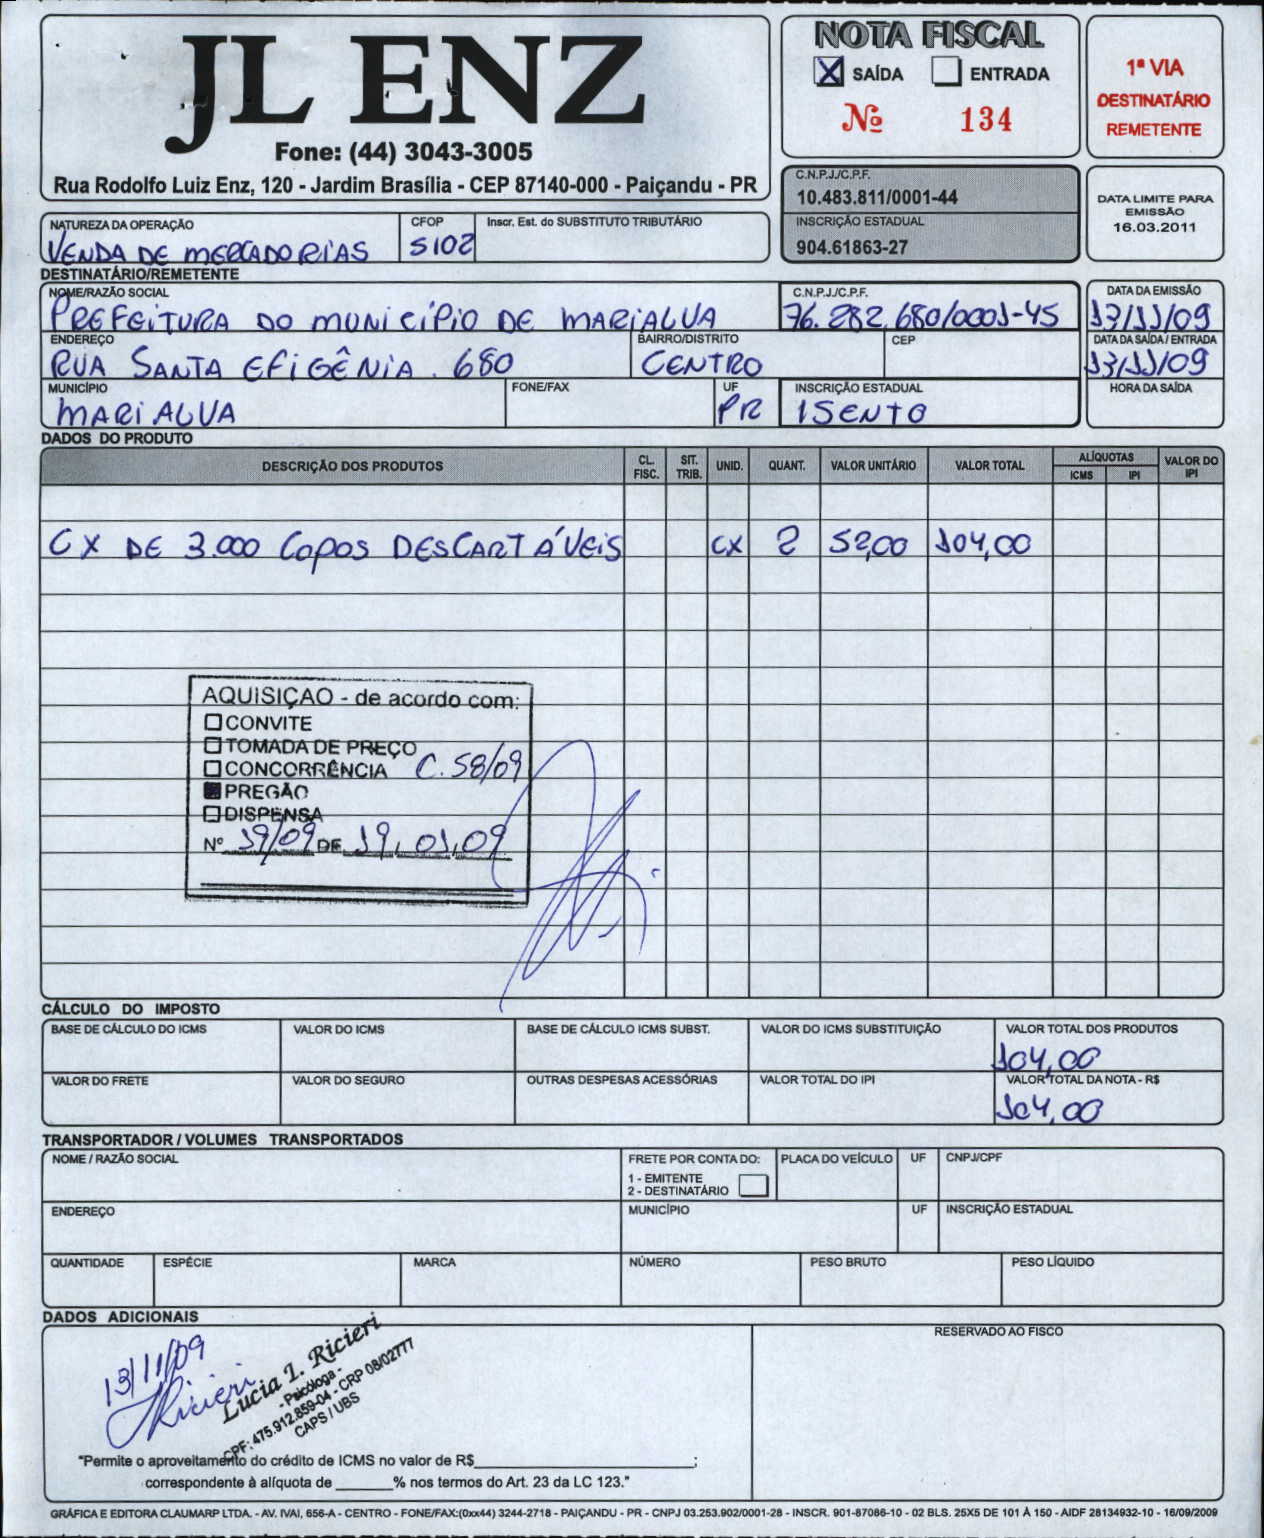 JL ENZ
Fone: (44) 3043-3005
Rua Rodolfo Luiz Enz, 120 - Jardim Brasília - CEP 87140-000 - Paiçandu - PR
NOTA FISCAL
X SAÍDA ENTRADA
Nº 134
1ª VIA
DESTINATÁRIO
REMETENTE
C.N.P.J./C.P.F.
10.483.811/0001-44
INSCRIÇÃO ESTADUAL
904.61863-27
DATA LIMITE PARA
EMISSÃO
16.03.2011
NATUREZA DA OPERAÇÃO CFOP Inscr. Est. do SUBSTITUTO TRIBUTÁRIO
VENDA DE MERCADORIAS 5102
DESTINATÁRIO/REMETENTE
NOME/RAZÃO SOCIAL C.N.P.J./C.P.F. DATA DA EMISSÃO
PREFEITURA DO MUNICÍPIO DE MARIALVA 76.282.680/0001-45 13/11/09
ENDEREÇO BAIRRO/DISTRITO CEP DATA DA SAÍDA / ENTRADA
RUA SANTA EFIGÊNIA. 680 CENTRO 13/11/09
MUNICÍPIO FONE/FAX UF INSCRIÇÃO ESTADUAL HORA DA SAÍDA
MARIALVA PR ISENTO
DADOS DO PRODUTO
DESCRIÇÃO DOS PRODUTOS CL. FISC. SIT. TRIB. UNID. QUANT. VALOR UNITÁRIO VALOR TOTAL ALÍQUOTAS ICMS IPI VALOR DO IPI
CX DE 3.000 COPOS DESCARTÁVEIS CX 2 52,00 104,00
AQUISIÇÃO - de acordo com:
CONVITE
TOMADA DE PREÇO
CONCORRÊNCIA C. 58/09
PREGÃO
DISPENSA
Nº 19/09 DE 19, 01, 09
CÁLCULO DO IMPOSTO
BASE DE CÁLCULO DO ICMS VALOR DO ICMS BASE DE CÁLCULO ICMS SUBST. VALOR DO ICMS SUBSTITUIÇÃO VALOR TOTAL DOS PRODUTOS
104,00
VALOR DO FRETE VALOR DO SEGURO OUTRAS DESPESAS ACESSÓRIAS VALOR TOTAL DO IPI VALOR TOTAL DA NOTA - R$
104,00
TRANSPORTADOR / VOLUMES TRANSPORTADOS
NOME / RAZÃO SOCIAL FRETE POR CONTA DO: PLACA DO VEÍCULO UF CNPJ/CPF
1 - EMITENTE
2 - DESTINATÁRIO
ENDEREÇO MUNICÍPIO UF INSCRIÇÃO ESTADUAL
QUANTIDADE ESPÉCIE MARCA NÚMERO PESO BRUTO PESO LÍQUIDO
DADOS ADICIONAIS
RESERVADO AO FISCO
13/11/09
Ricieri
Lucia I. Ricieri
- Psicóloga -
CPF: 475.912.859-04 - CRP 08/02777
CAPS / UBS
"Permite o aproveitamento do crédito de ICMS no valor de R$ ;
correspondente à alíquota de % nos termos do Art. 23 da LC 123."
GRÁFICA E EDITORA CLAUMARP LTDA. - AV. IVAI, 656-A - CENTRO - FONE/FAX:(0xx44) 3244-2718 - PAIÇANDU - PR - CNPJ 03.253.902/0001-28 - INSCR. 901-87086-10 - 02 BLS. 25X5 DE 101 À 150 - AIDF 28134932-10 - 16/09/2009